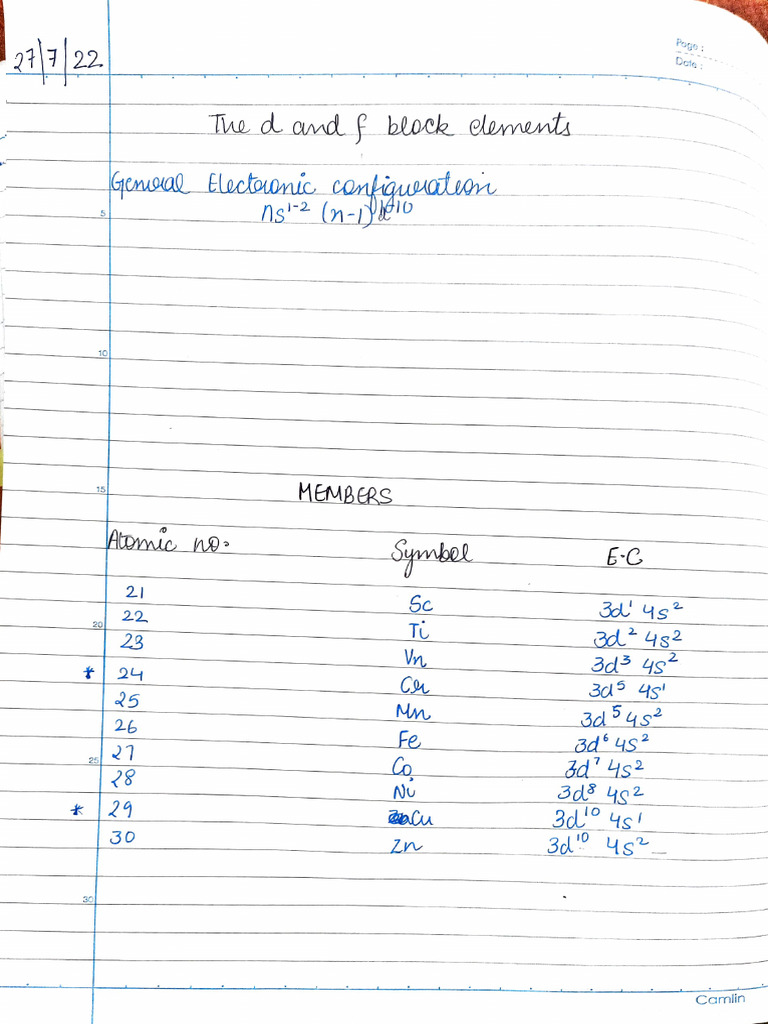 Page :
Date :
27/7/22
The d and f block elements
General Electronic configuration
5
ns¹⁻² (n-1)d¹⁻¹⁰
10
15
MEMBERS
Atomic no: Symbol E.C
21 Sc 3d¹ 4s²
20
22 Ti 3d² 4s²
23 Vn 3d³ 4s²
* 24 Cr 3d⁵ 4s¹
25 Mn 3d⁵ 4s²
26 Fe 3d⁶ 4s²
25
27 Co 3d⁷ 4s²
28 Ni 3d⁸ 4s²
* 29 Cu 3d¹⁰ 4s¹
30 Zn 3d¹⁰ 4s²
30
Camlin